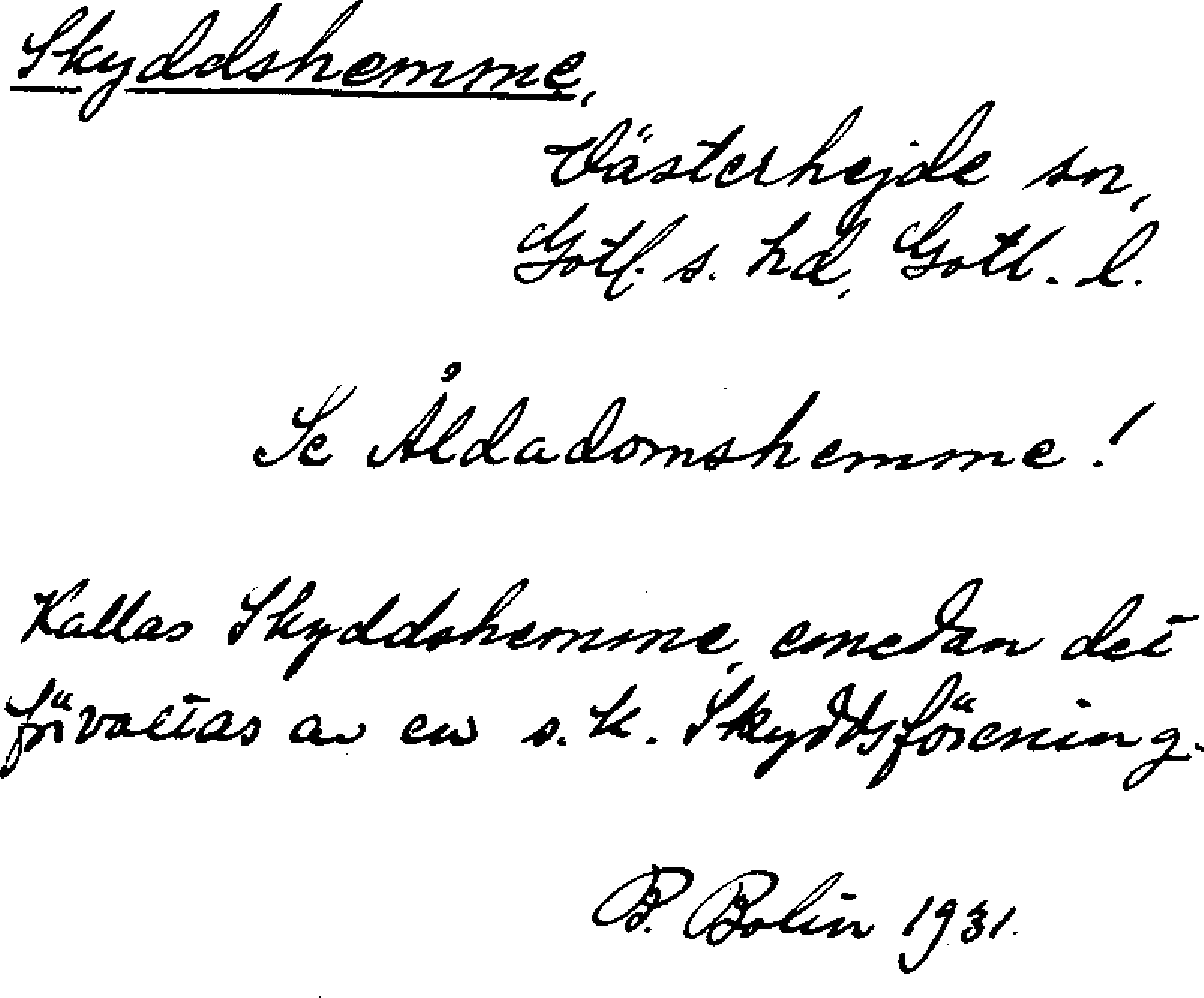 Skyddshemme,
Västerhejde sn,
Gotl. s. hd, Gotl. l.
Se Åldadomshemme!
Kallas Skyddshemme, emedan det
förvaltas av en s.k. Skyddsförening.
B. Bolin 1931.